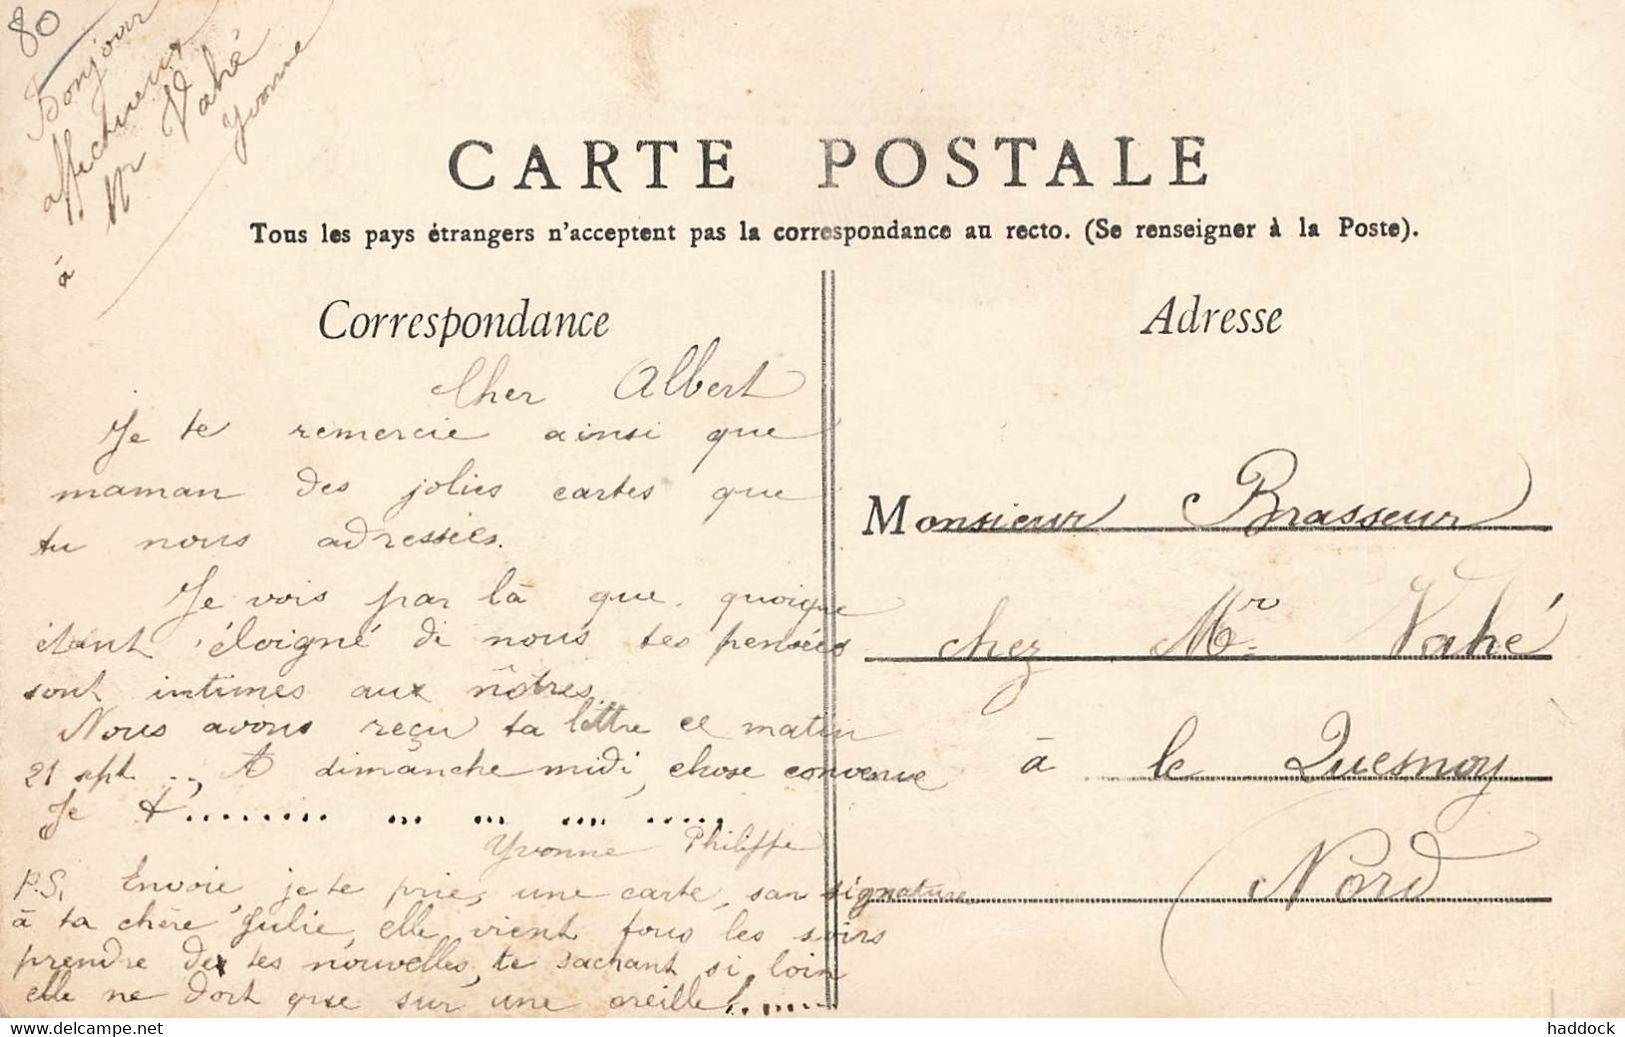 80
Bonjour
affectueux
à Mr Vahé
Yvonne
CARTE POSTALE
Tous les pays étrangers n'acceptent pas la correspondance au recto. (Se renseigner à la Poste).
Correspondance
Cher Albert
Je te remercie ainsi que
maman des jolies cartes que
tu nous adressées.
Je vois par là que quoique
étant éloigné de nous tes pensées
sont intimes aux nôtres.
Nous avons reçu ta lettre ce matin
21 sept. .., A dimanche midi, chose convenue
Je t......... ... ... .... .....
Yvonne Philippe
P.S. Envoie, je te prie, une carte, san signature
à ta chère Julie, elle vient tous les soirs
prendre de tes nouvelles, te sachant si loin
elle ne dort que sur une oreille!.......
Adresse
Monsieur Brasseur
chez Mr Vahé
à le Quesnoy
Nord
https://www.delcampe.net
haddock